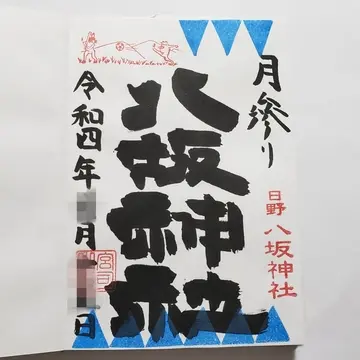 月参り
日野 八坂神社
八坂神社
令和四年 月 日
宮司